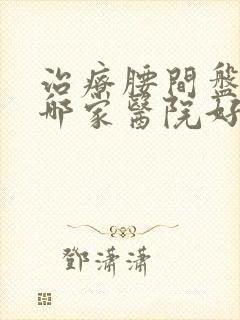 治療腰間盤
哪家醫院好
鄧瀟瀟